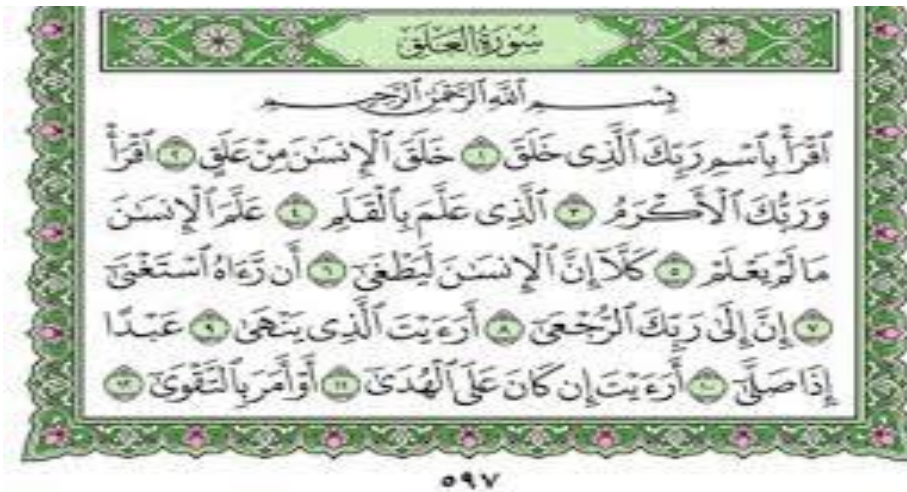 سُورَةُ العَلَقِ
بِسْمِ ٱللَّهِ ٱلرَّحْمَٰنِ ٱلرَّحِيمِ
ٱقْرَأْ بِٱسْمِ رَبِّكَ ٱلَّذِى خَلَقَ ١ خَلَقَ ٱلْإِنسَٰنَ مِنْ عَلَقٍ ٢ ٱقْرَأْ
وَرَبُّكَ ٱلْأَكْرَمُ ٣ ٱلَّذِى عَلَّمَ بِٱلْقَلَمِ ٤ عَلَّمَ ٱلْإِنسَٰنَ
مَا لَمْ يَعْلَمْ ٥ كَلَّآ إِنَّ ٱلْإِنسَٰنَ لَيَطْغَىٰٓ ٦ أَن رَّءَاهُ ٱسْتَغْنَىٰٓ
٧ إِنَّ إِلَىٰ رَبِّكَ ٱلرُّجْعَىٰٓ ٨ أَرَءَيْتَ ٱلَّذِى يَنْهَىٰ ٩ عَبْدًا
إِذَا صَلَّىٰٓ ١٠ أَرَءَيْتَ إِن كَانَ عَلَى ٱلْهُدَىٰٓ ١١ أَوْ أَمَرَ بِٱلتَّقْوَىٰٓ ١٢
٥٩٧